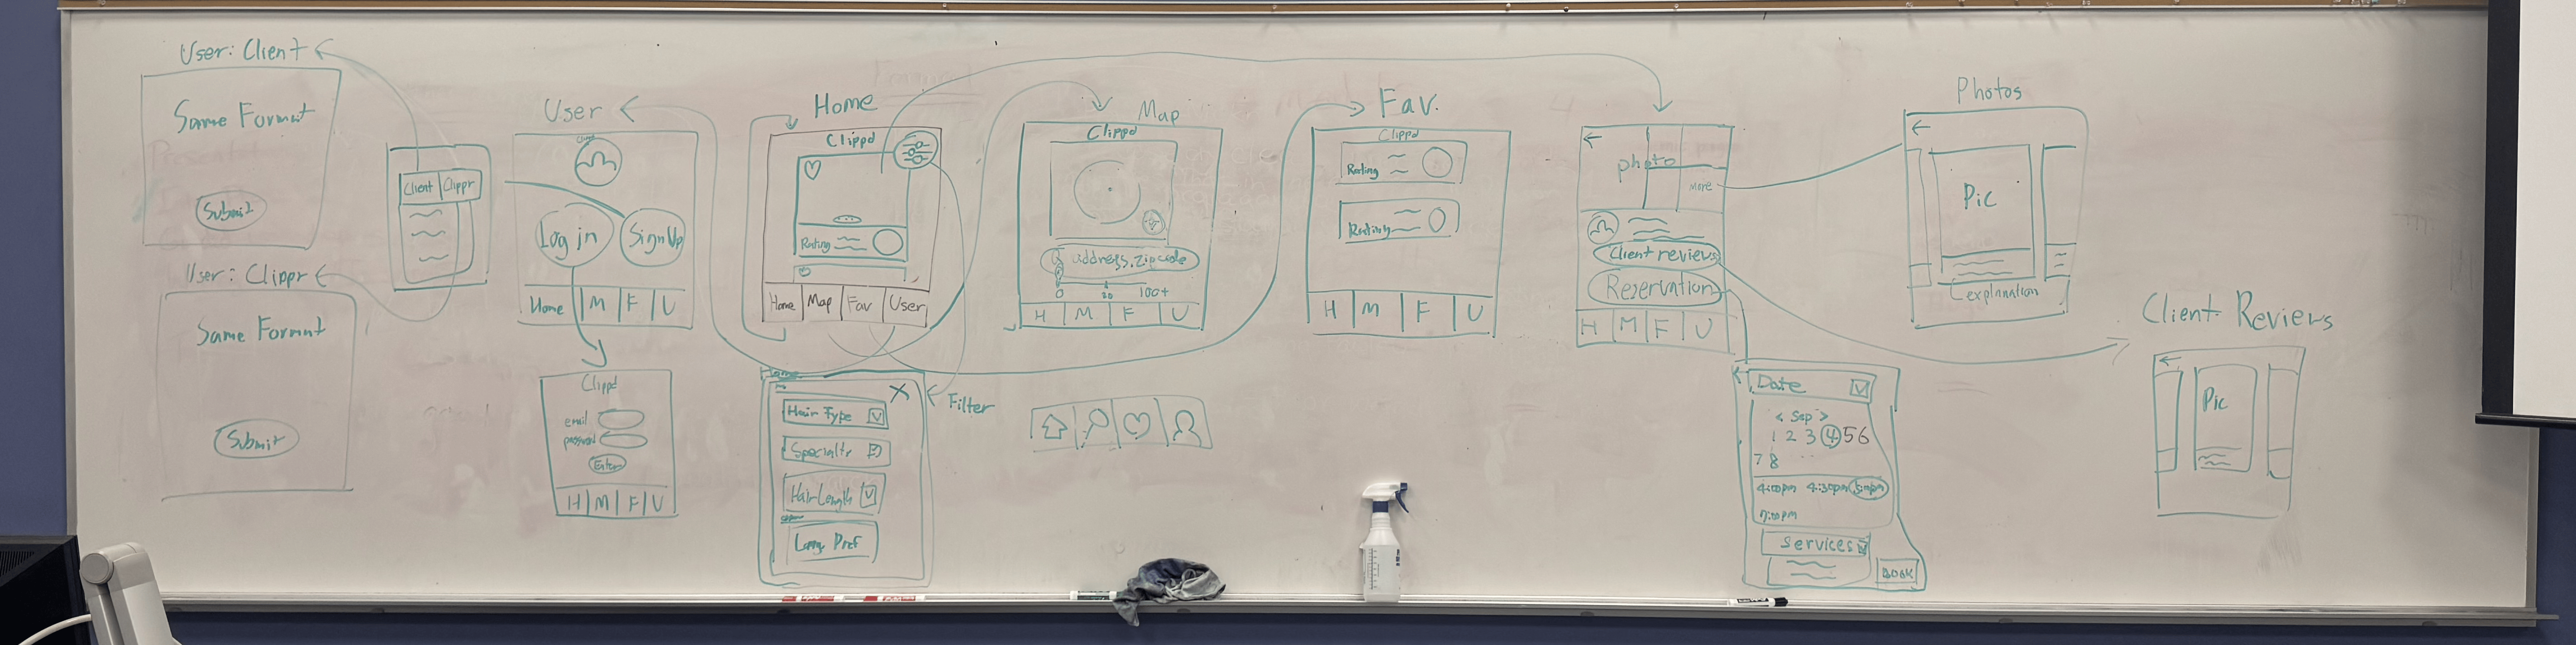 User: Client
Same Format
Submit
User: Clippr
Same Format
Submit
Client Clippr
User
Log in
Sign Up
Home M F U
Clippd
email
password
Enter
H M F U
Home
Clippd
Rating
Home Map Fav User
Home
Filter
X
Hair Type
Specialty
Hair Length
Lang. Pref
Map
Clippd
address, zipcode
0
100+
H M F U
Fav.
Clippd
Rating
Rating
H M F U
photo
more
Client reviews
Reservation
H M F U
Date
< Sep >
1 2 3 4 5 6
7 8
4:00pm 4:30pm 5:00pm
Services
BOOK
Photos
Pic
explanation
Client Reviews
Pic